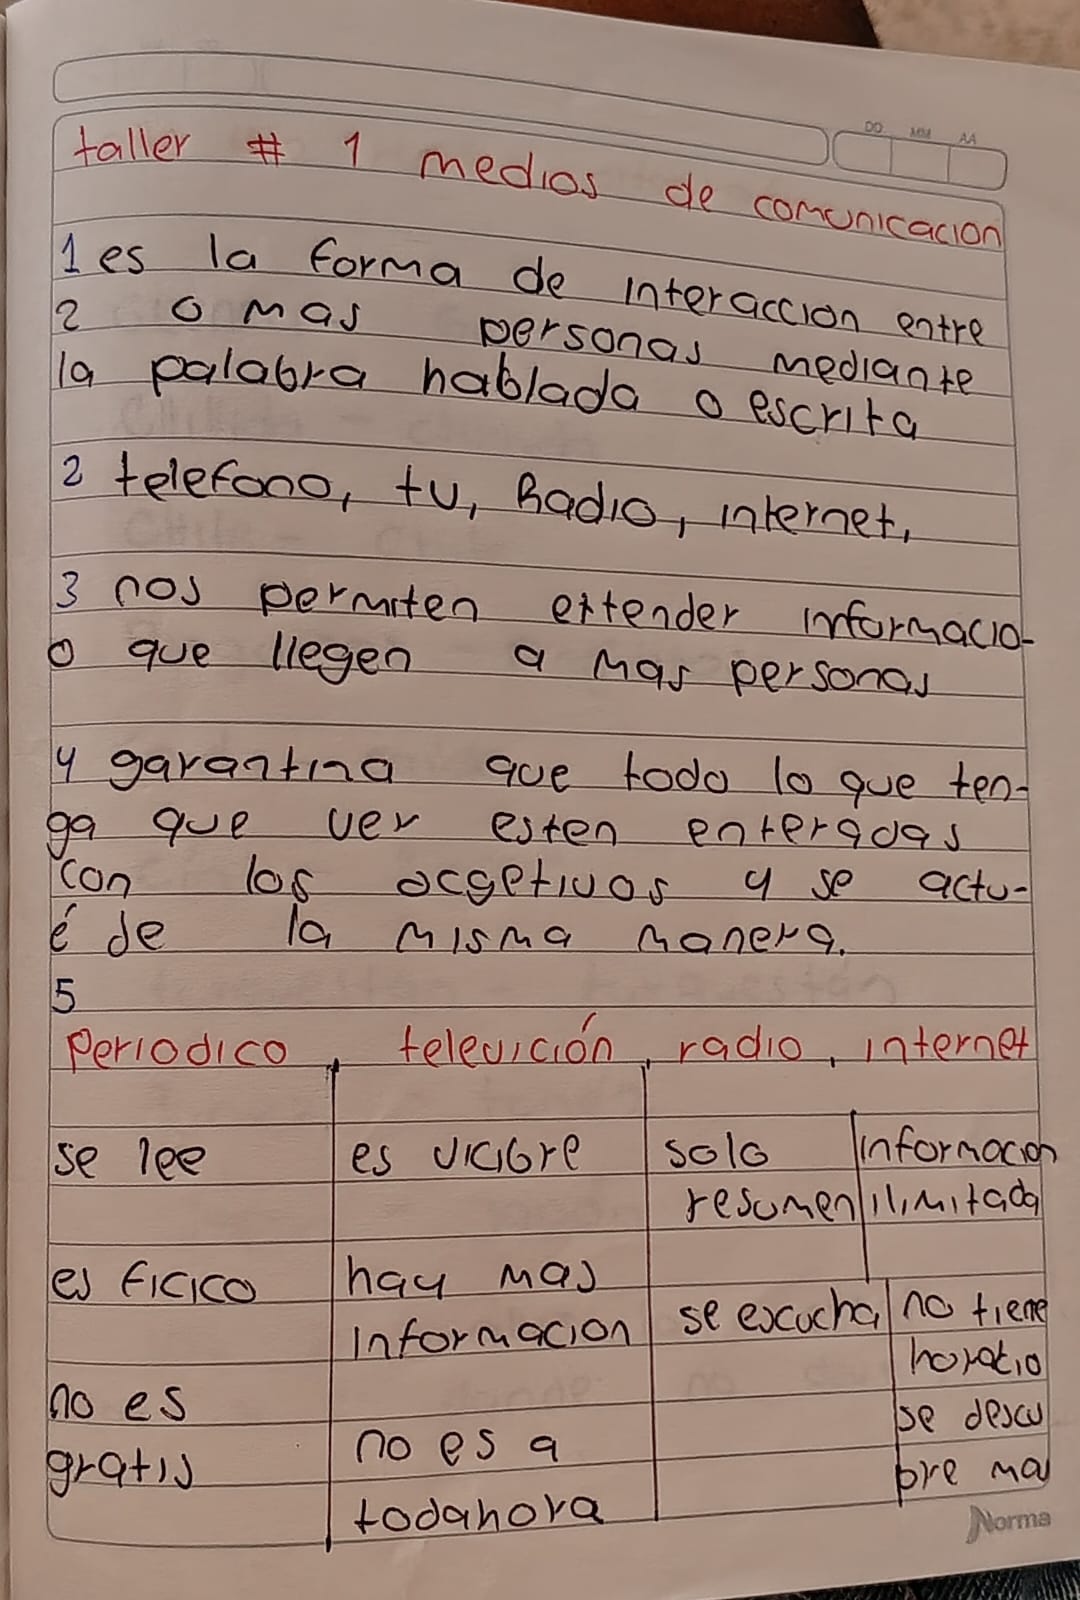 DD MM AA
taller # 1 medios de comunicacion
1 es la forma de interaccion entre
2 o mas personas mediante
la palabra hablada o escrita
2 telefono, tv, Radio, internet,
3 nos permiten extender informacio-
o que llegen a mas personas
4 garantina que todo lo que ten-
ga que ver esten enteradas
con los ocgetivos y se actu-
é de la misma manera.
5
Periodico, televición, radio, internet
se lee
es ficico
no es
gratis
es vicibre
hay mas
informacion
no es a
todahora
solo
resumen
se escucha
informacion
ilimitada
no tiene
horatio
se descu
bre mas
Norma